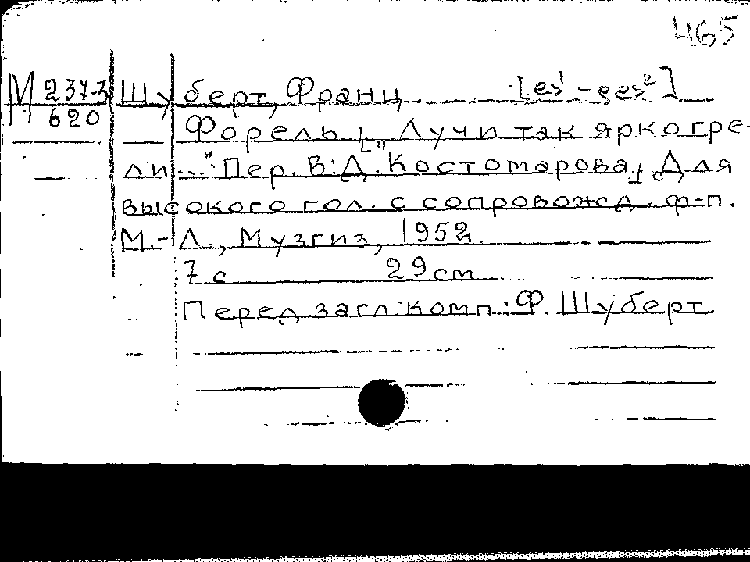 465
М 237-3 Шуберт, Франц [es¹ - ges²]
620 Форель [„Лучи так ярко гре-
ли..." Пер. В. Д. Костомарова]. Для
высокого гол. с сопровожд. ф-п.
М.-Л., Музгиз, 1952.
7 с 29 см
Перед загл. комп.: Ф. Шуберт